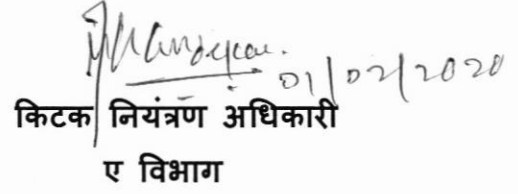 01/02/2020
किटक नियंत्रण अधिकारी
ए विभाग